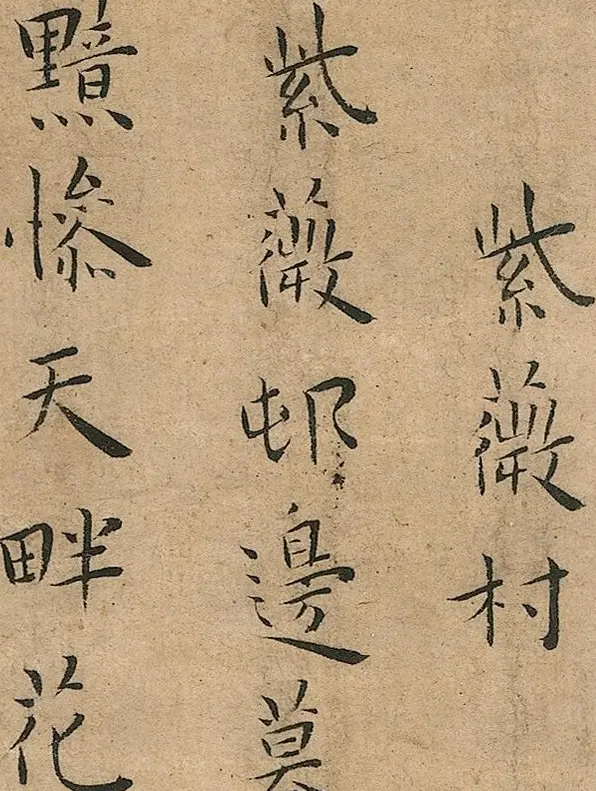 紫薇村
紫薇邨邊莫
黯慘天畔花